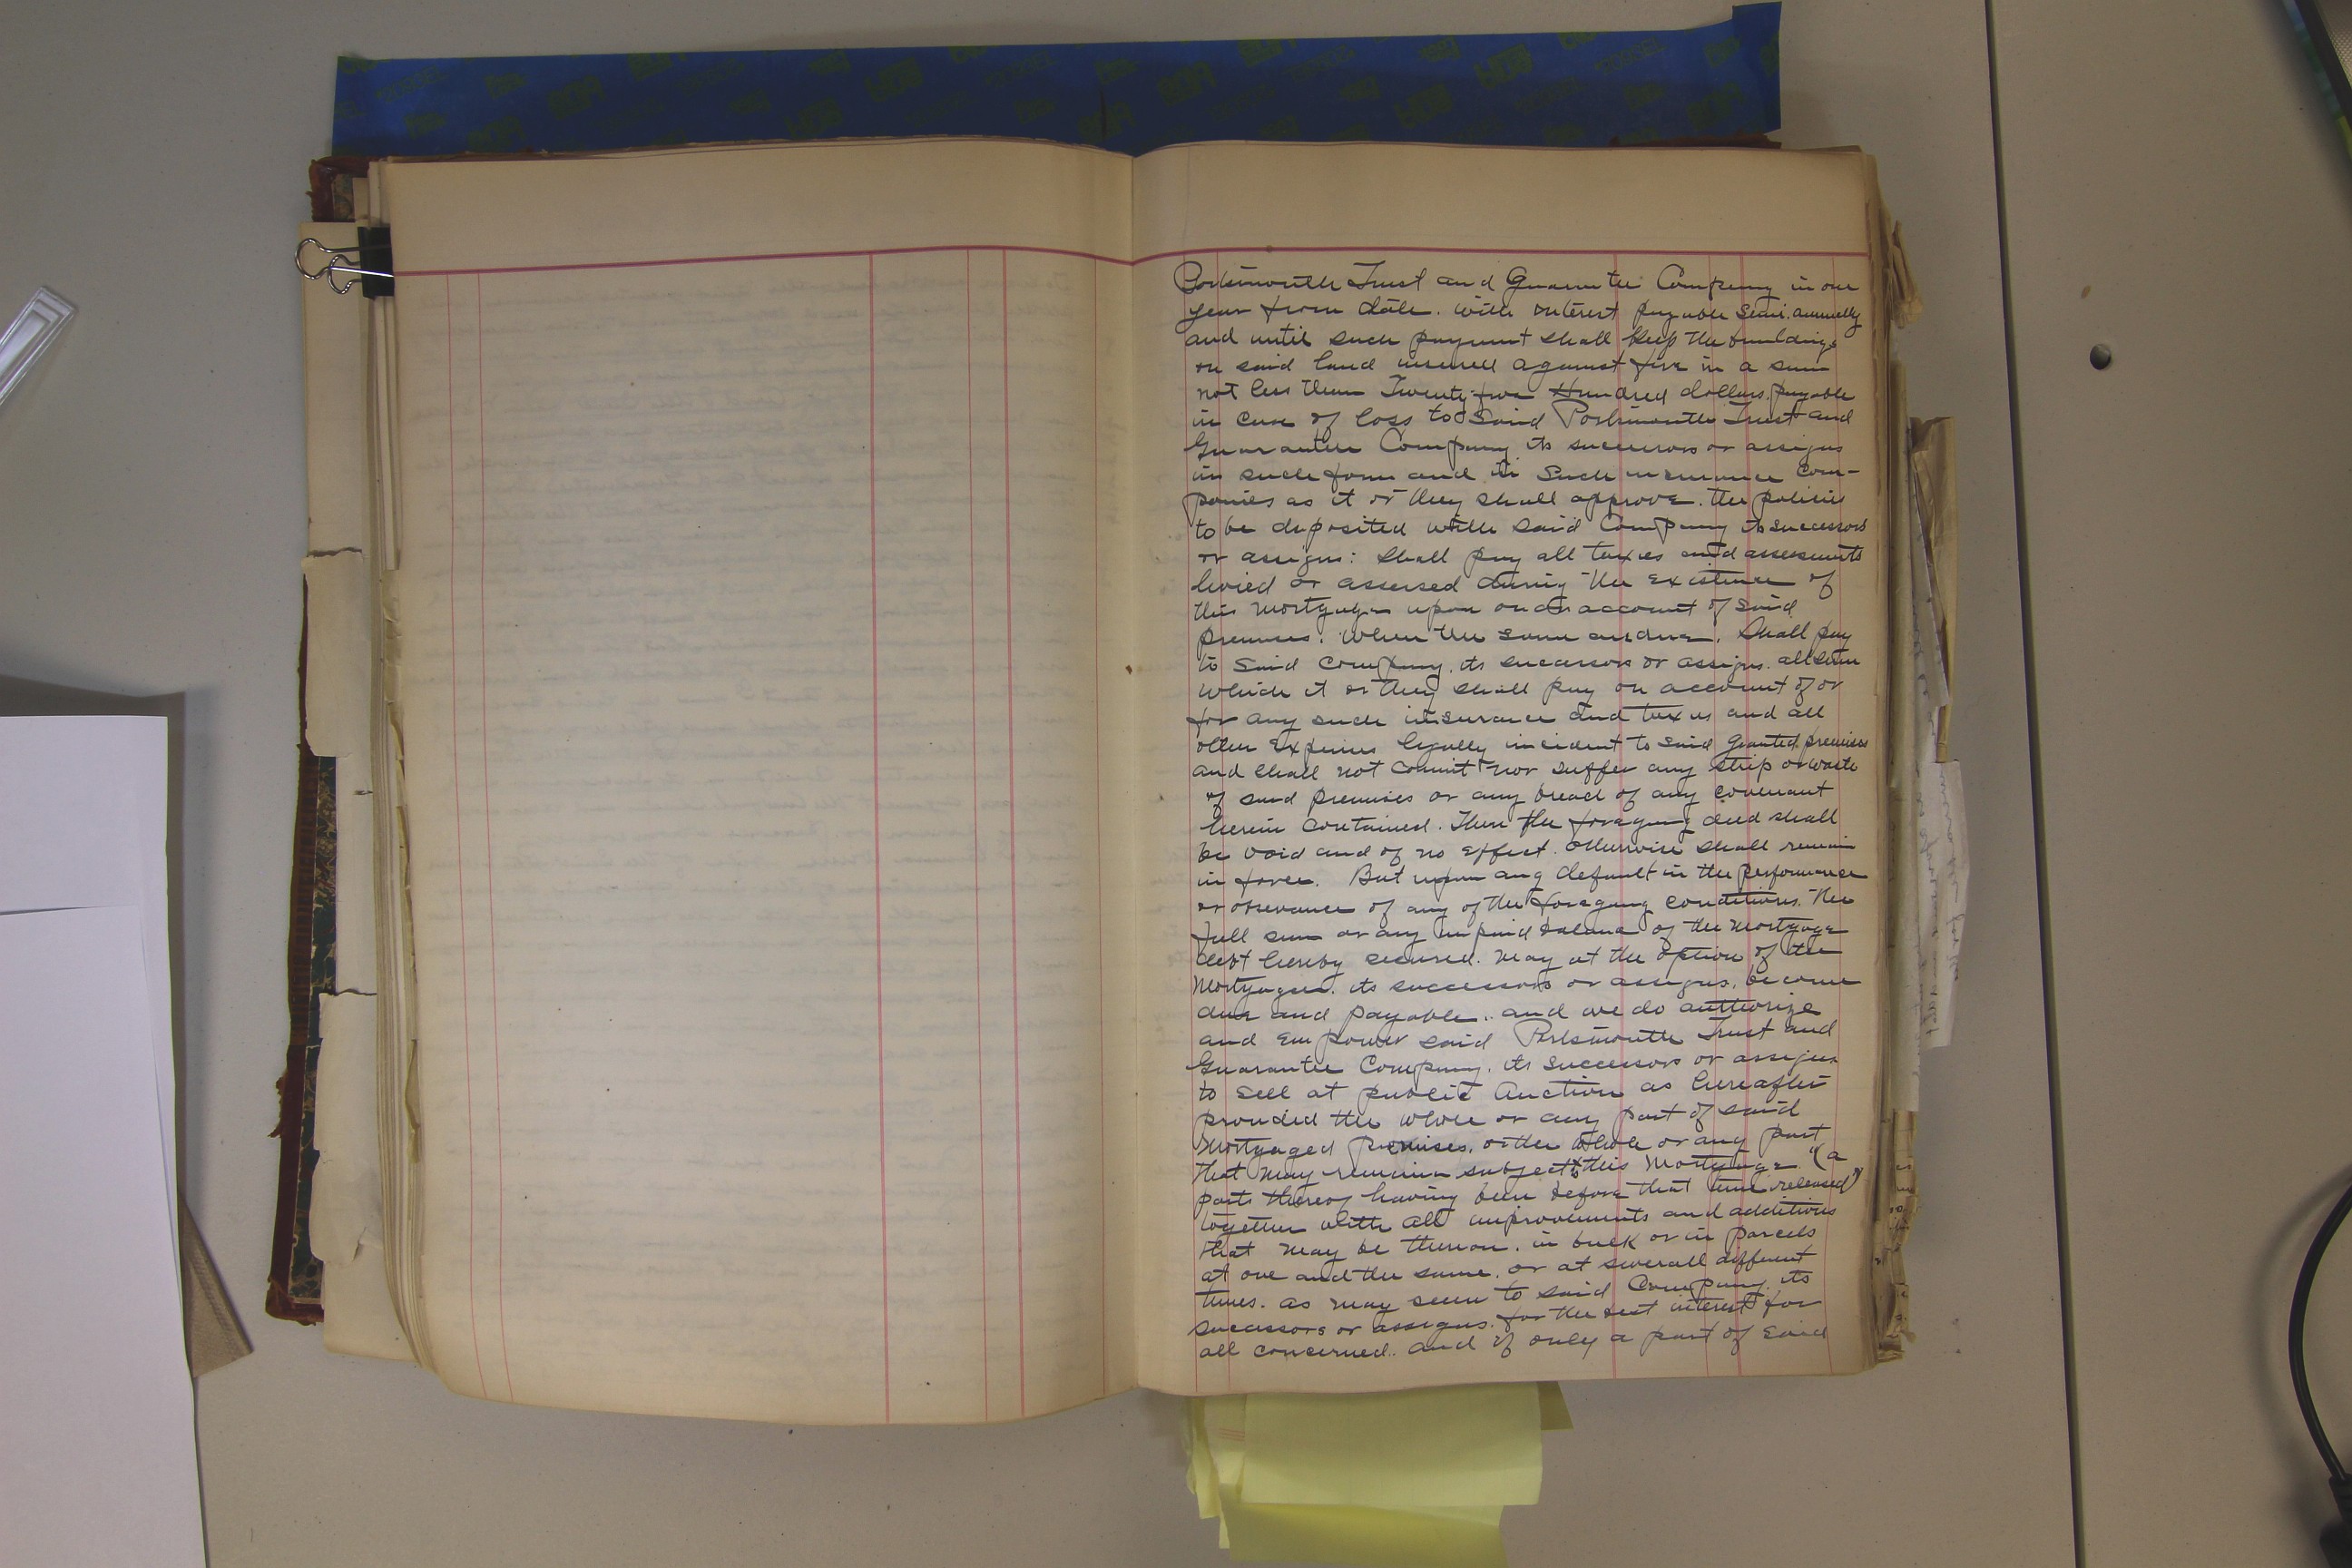 Portsmouth Trust and Guarantee Company in one
year from date. with interest payable Semi. annually
and until such payment shall keep the buildings
on said land insured against fire in a sum
not less than Twenty five Hundred dollars. payable
in case of loss to Said Portsmouth Trust and
Guarantee Company its successors or assigns
in such form and in Such insurance Com-
panies as it or they shall approve. the policies
to be deposited with said Company its successors
or assigns: Shall pay all taxes and assessments
levied or assessed during the existence of
this Mortgage upon or on account of said
premises. When the same are due. Shall pay
to Said Company. its successors or assigns. all sum
which it or they shall pay on account of or
for any such insurance and taxes and all
other Expenses legally incident to said Granted premises
and shall not commit nor suffer any strip or waste
of said premises or any breach of any covenant
herein contained. Then the foregoing deed shall
be void and of no effect. otherwise shall remain
in force. But upon any default in the performance
or observance of any of the foregoing conditions. the
full sum or any unpaid balance of the Mortgage
debt hereby secured. may at the option of the
Mortgagee. its successors or assigns. become
due and payable. and we do authorize
and Empower said Portsmouth Trust and
Guarantee Company. its successors or assigns
to sell at public Auction as hereafter
provided the whole or any part of said
Mortgaged premises. or the whole or any part
that may remain subject to this Mortgage "(a
part thereof having been before that time released")
together with all improvements and additions
that may be thereon. in bulk or in parcels
at one and the same. or at severall different
times. as may seem to said Company. its
successors or assigns. for the best interest for
all concerned. and if only a part of said